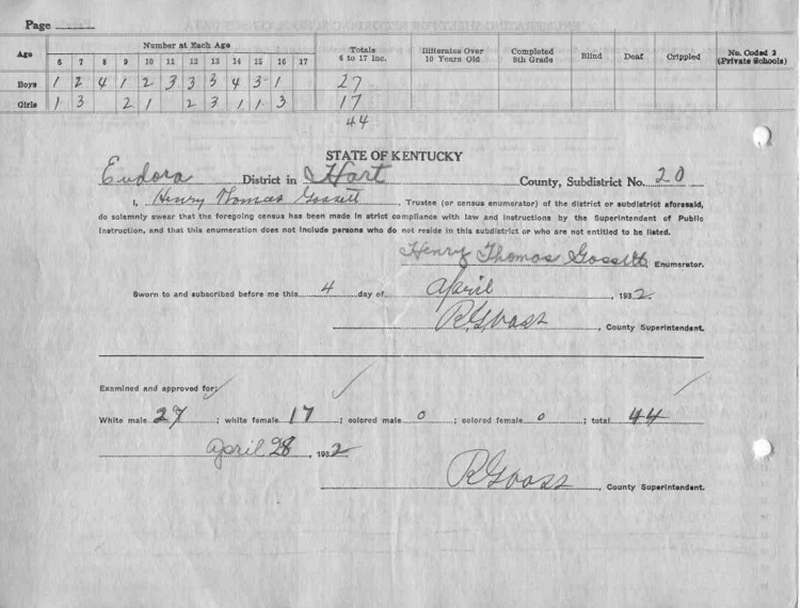 Page
Age Number at Each Age Totals 6 to 17 Inc. Illiterates Over 10 Years Old Completed 8th Grade Blind Deaf Crippled No. Coded 2 (Private Schools)
6 7 8 9 10 11 12 13 14 15 16 17
Boys 1 2 4 1 2 3 3 3 4 3 1 27
Girls 1 3 2 1 2 3 1 1 3 17
44
STATE OF KENTUCKY
Eudora District in Hart County, Subdistrict No. 20
I, Henry Thomas Gossett, Trustee (or census enumerator) of the district or subdistrict aforesaid,
do solemnly swear that the foregoing census has been made in strict compliance with law and instructions by the Superintendent of Public
Instruction, and that this enumeration does not include persons who do not reside in this subdistrict or who are not entitled to be listed.
Henry Thomas Gossett Enumerator.
Sworn to and subscribed before me this 4 day of April, 1932.
R.G. Vass, County Superintendent.
Examined and approved for:
White male 27; white female 17; colored male 0; colored female 0; total 44
April 28, 1932
R G Vass, County Superintendent.